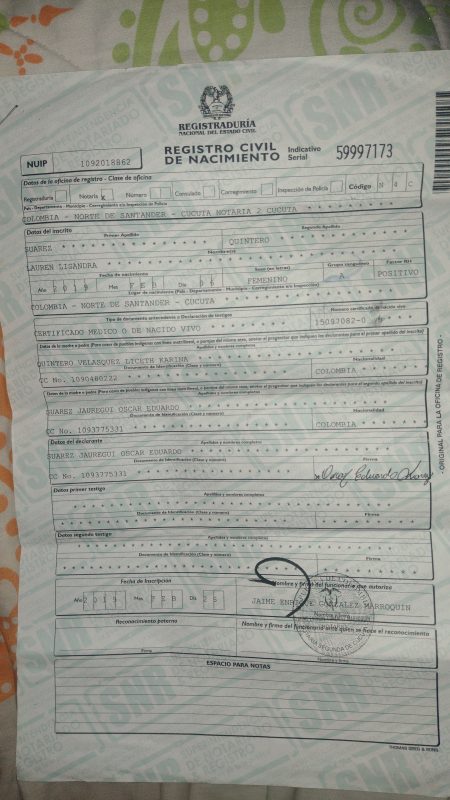 REGISTRADURÍA
NACIONAL DEL ESTADO CIVIL
REGISTRO CIVIL
DE NACIMIENTO
NUIP 1092018862
Indicativo Serial 59997173
Datos de la oficina de registro - Clase de oficina
Registraduría Notaría X Número Consulado Corregimiento Inspección de Policía Código N 8 C
País - Departamento - Municipio - Corregimiento e/o Inspección de Policía
COLOMBIA - NORTE DE SANTANDER - CUCUTA NOTARIA 2 CUCUTA
Datos del inscrito
Primer Apellido Segundo Apellido
SUAREZ QUINTERO
Nombre(s)
LAUREN LISANDRA
Fecha de nacimiento Sexo (en letras) Grupo sanguíneo Factor RH
Año 2019 Mes FEB Día 06 FEMENINO A POSITIVO
Lugar de nacimiento (País - Departamento - Municipio - Corregimiento e/o Inspección)
COLOMBIA - NORTE DE SANTANDER - CUCUTA
Tipo de documento antecedente o Declaración de testigos Número certificado de nacido vivo
CERTIFICADO MEDICO O DE NACIDO VIVO 15097082-0
Apellidos y nombres completos
QUINTERO VELASQUEZ LICETH KARINA
Documento de Identificación (Clase y número) Nacionalidad
CC No. 1090480222 COLOMBIA
Apellidos y nombres completos
SUAREZ JAUREGUI OSCAR EDUARDO
Documento de Identificación (Clase y número) Nacionalidad
CC No. 1093775331 COLOMBIA
Datos del declarante
Apellidos y nombres completos
SUAREZ JAUREGUI OSCAR EDUARDO
Documento de Identificación (Clase y número) Firma
CC No. 1093775331
Datos primer testigo
Apellidos y nombres completos
Documento de Identificación (Clase y número) Firma
Datos segundo testigo
Apellidos y nombres completos
Documento de Identificación (Clase y número) Firma
Fecha de inscripción Nombre y firma del funcionario que autoriza
Año 2019 Mes FEB Día
JAIME ENRIQUE GONZALEZ MARROQUIN
Reconocimiento paterno Nombre y firma del funcionario ante quien se hace el reconocimiento
Firma Nombre y firma
ESPACIO PARA NOTAS
- ORIGINAL PARA LA OFICINA DE REGISTRO -
THOMAS GREG & SONS